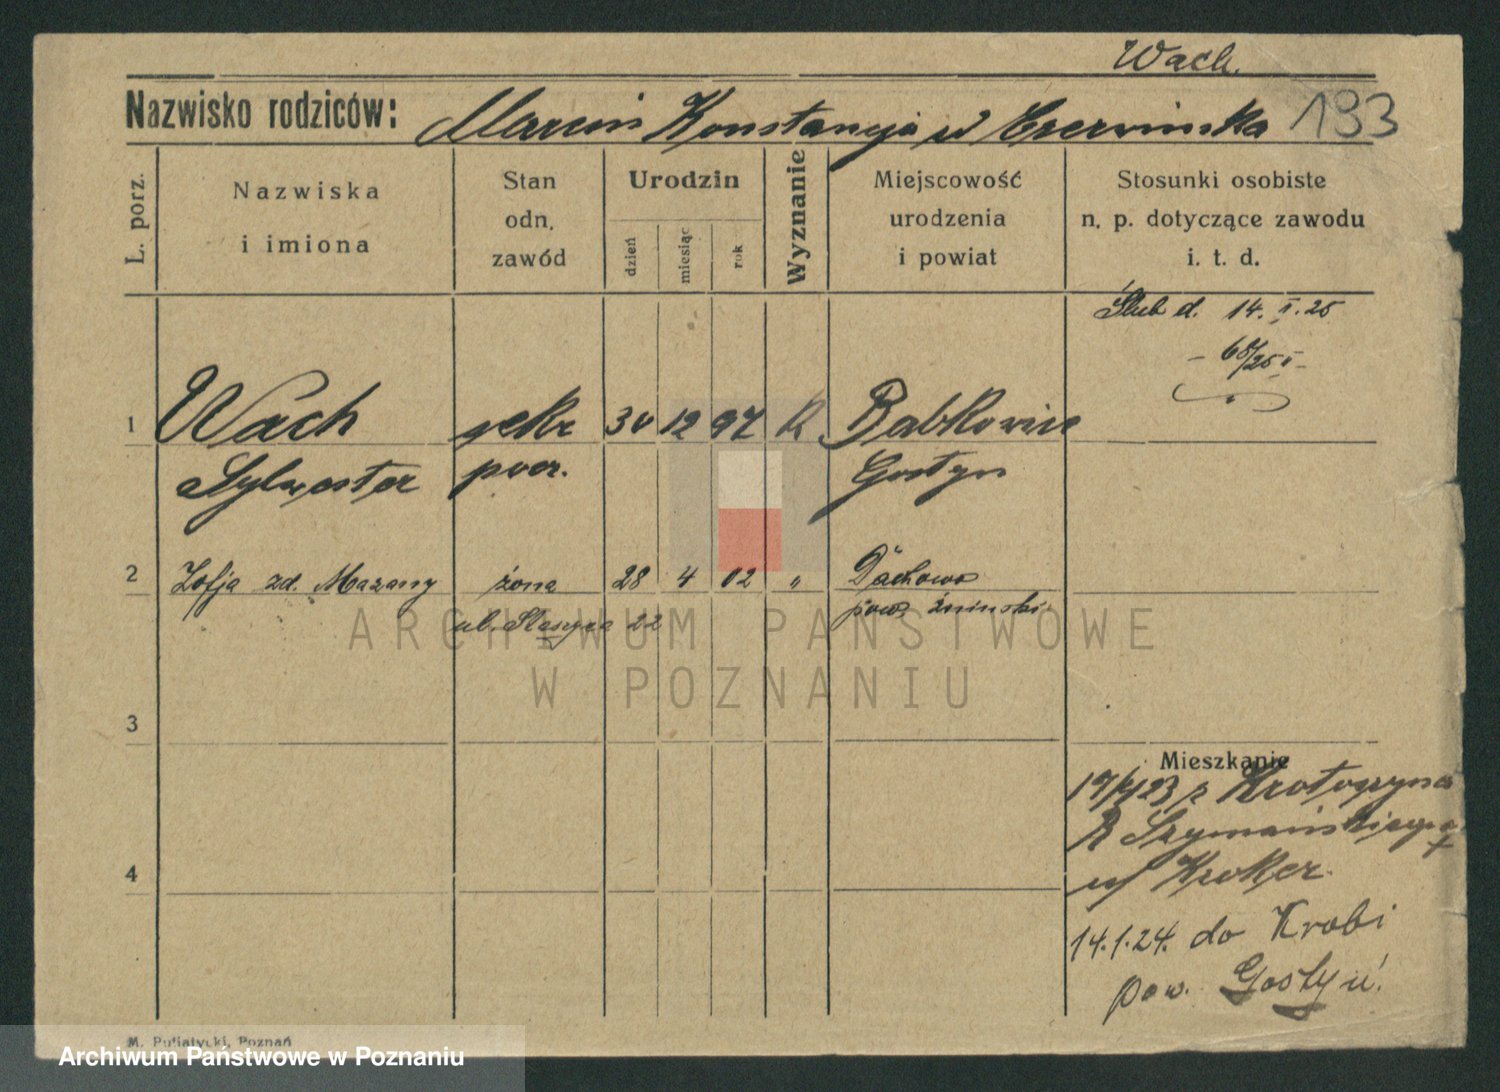 Wach.
Nazwisko rodziców: Marcin Konstancja w Czerwinska 193
L. porz.
Nazwiska
i imiona
Stan
odn,
zawód
Urodzin
dzień
miesiąc
rok
Wyznanie
Miejscowość
urodzenia
i powiat
Stosunki osobiste
n. p. dotyczące zawodu
i. t. d.
Ślub d. 14. II. 25
- 68/25 II -
1 Wach sekr 30 12 97 K Babkowice
Sylwester pocz. Gostyn
2 Zofja zd. Mazany żona 28 4 02 " Dąchowo
ul. Staszyca 22 pow. żninski
3
Mieszkanie
19/4 23 z Krotoszyna
Szymańskiego
4
w/ Kroker
14.1.24. do Krobi
pow. Gostyń.
M. Putiatycki, Poznań
ARCHIWUM PAŃSTWOWE
W POZNANIU
Archiwum Państwowe w Poznaniu